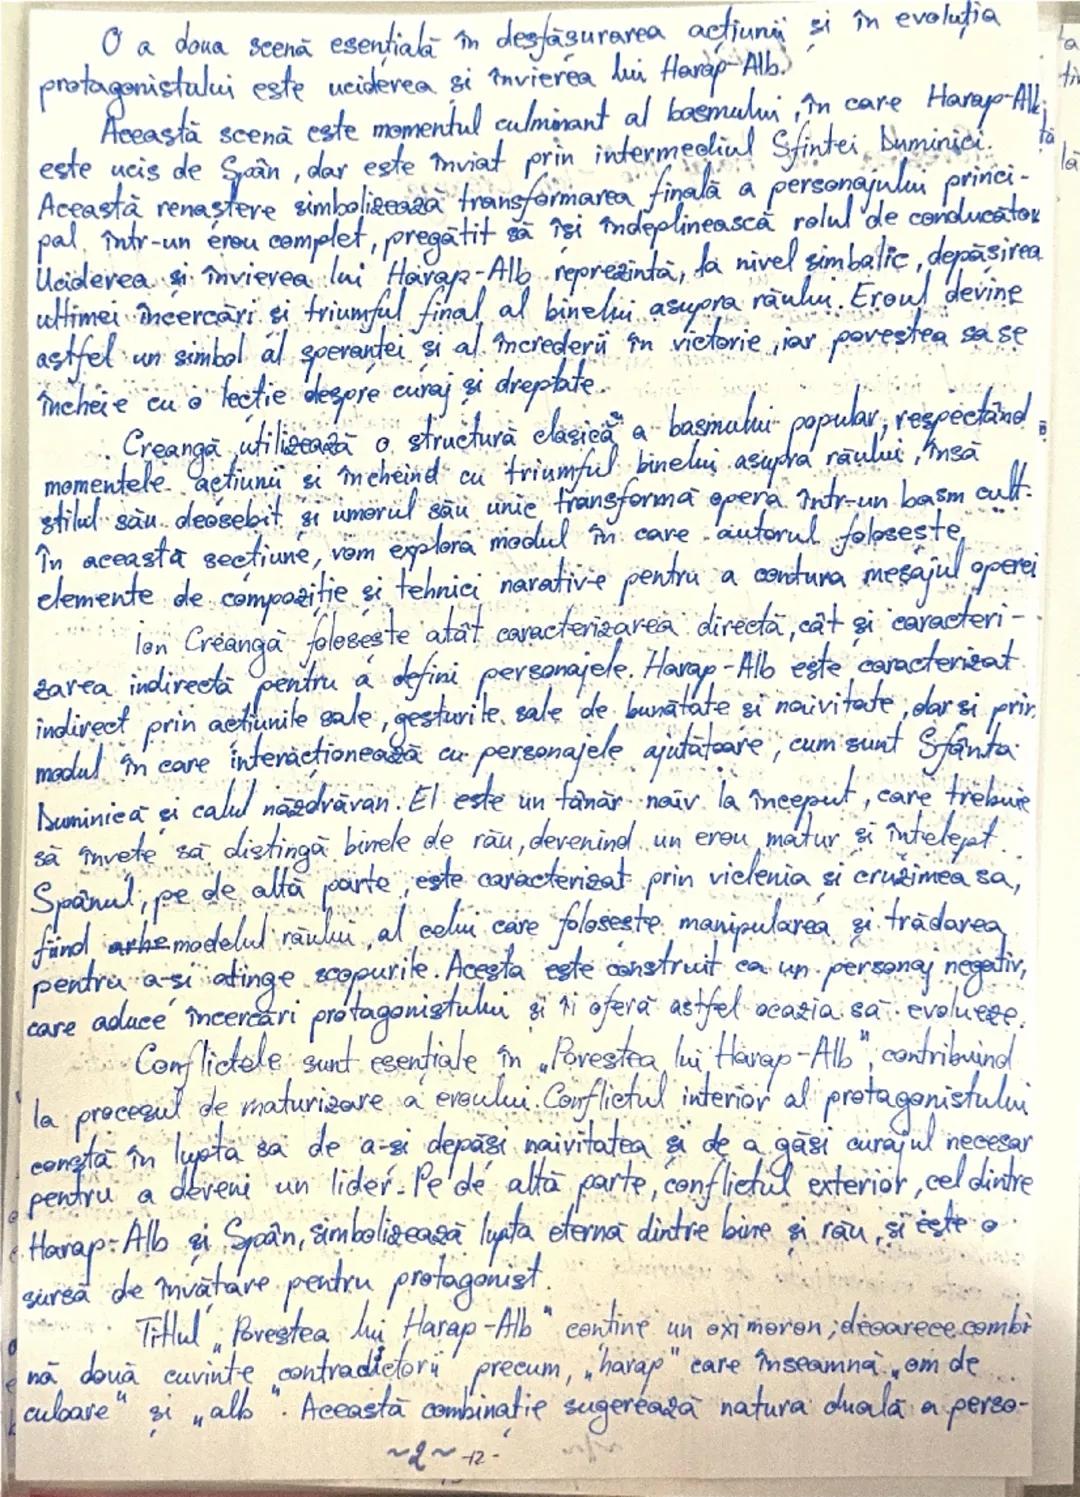 O a doua scenă esențială în desfășurarea acțiunii și în evoluția
protagonistului este uciderea și învierea lui Harap-Alb.
Această scenă este momentul culminant al basmului, în care Harap-Alb
este ucis de Spân, dar este înviat prin intermediul Sfintei Duminici.
Această renaștere simbolizează transformarea finală a personajului princi-
pal, într-un erou complet, pregătit să își îndeplinească rolul de conducător
Uciderea și învierea lui Harap-Alb reprezintă, la nivel simbolic, depășirea
ultimei încercări și triumful final al binelui asupra răului. Eroul devine
astfel un simbol al speranței și al încrederii în victorie, iar povestea sa se
încheie cu o lecție despre curaj și dreptate.
Creangă utilizează o structură clasică a basmului popular, respectând
momentele acțiunii și încheind cu triumful binelui asupra răului, însă
stilul său deosebit și umorul său unic transformă opera într-un basm cult.
În această secțiune, vom explora modul în care autorul folosește
elemente de compoziție și tehnici narative pentru a contura mesajul operei
Ion Creangă folosește atât caracterizarea directă, cât și caracteri-
zarea indirectă pentru a defini personajele. Harap-Alb este caracterizat
indirect prin acțiunile sale, gesturile sale de bunătate și naivitate, dar și prin
modul în care interacționează cu personajele ajutătoare, cum sunt Sfânta
Duminică și calul năzdrăvan. El este un tânăr naiv la început, care trebuie
să învețe să distingă binele de rău, devenind un erou matur și înțelept.
Spânul, pe de altă parte, este caracterizat prin viclenia și cruzimea sa,
fiind modelul răului, al celui care folosește manipularea și trădarea
pentru a-și atinge scopurile. Acesta este construit ca un personaj negativ,
care aduce încercări protagonistului și îi oferă astfel ocazia să evolueze.
Conflictele sunt esențiale în „Povestea lui Harap-Alb", contribuind
la procesul de maturizare a eroului. Conflictul interior al protagonistului
constă în lupta sa de a-și depăși naivitatea și de a găsi curajul necesar
pentru a deveni un lider. Pe de altă parte, conflictul exterior, cel dintre
Harap-Alb și Spân, simbolizează lupta eternă dintre bine și rău, și este o
sursă de învățare pentru protagonist.
Titlul „Povestea lui Harap-Alb" conține un oximoron, deoarece combi
nă două cuvinte contradictorii precum, „harap" care înseamnă „om de
culoare" și „alb". Această combinație sugerează natura duală a perso-
~2~ -12-